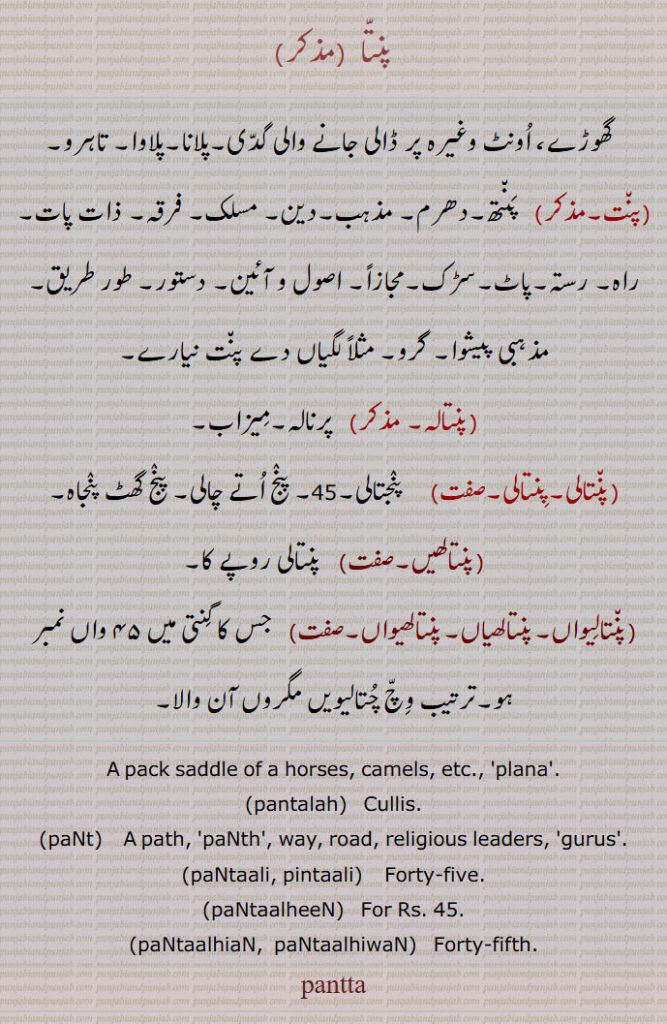 پنتّا (مذکر)
گھوڑے، اُونٹ وغیرہ پر ڈالی جانے والی گدّی۔پلانا۔پلاوا۔ تاہرو۔
(پنّت۔مذکر) پَنّتھ۔دھرم۔ مذہب۔دین۔ مسلک۔ فرقہ۔ ذات پات۔
راہ۔ رستہ۔پاٹ۔سڑک۔مجازاً۔ اصول و آئین۔ دستور۔ طور طریق۔
مذہبی پیشوا۔ گرو۔ مثلاً لگیاں دے پنّت نیارے۔
(پنتالہ۔ مذکر) پرنالہ۔مِیزاب۔
(پنّتالی۔پِنتالی۔صفت) پنْجتالی۔45۔ پنْج اُتے چالی۔ پنْج گھٹ پنْجاہ۔
(پنتالھیں۔صفت) پنتالی روپے کا۔
(پنّتالِیواں۔ پنتالھیاں۔ پنتالھیواں۔صفت) جس کا گِنتی میں ۴۵ واں نمبر
ہو۔ترتیب وِچّ چُتالیویں مگروں آن والا۔
A pack saddle of a horses, camels, etc., 'plana'.
(pantalah) Cullis.
(paNt) A path, 'paNth', way, road, religious leaders, 'gurus'.
(paNtaali, pintaali) Forty-five.
(paNtaalheeN) For Rs. 45.
(paNtaalhiaN, paNtaalhiwaN) Forty-fifth.
pantta